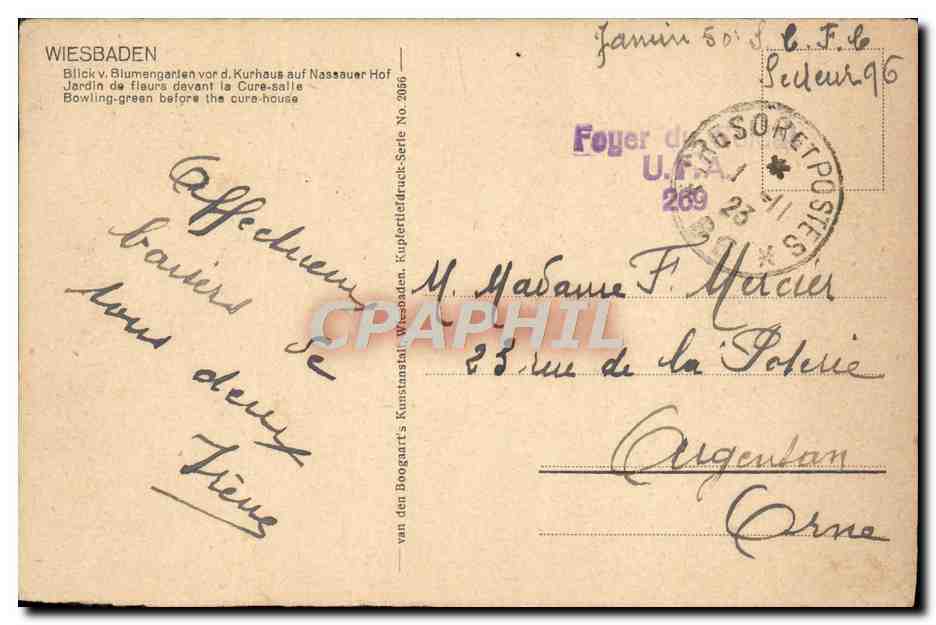 WIESBADEN
Blick v. Blumengarten vor d. Kurhaus auf Nassauer Hof
Jardin de fleurs devant la Cure-salle
Bowling-green before the cure-house
Janvin 50e S. C. F. C
Secteur 96
Foyer du
U.F.A.
269
TRESOR ET POSTES
23 11
Affectueux
baisers de
tous deux
Irène
van den Boogaart's Kunstanstalt, Wiesbaden. Kupfertiefdruck-Serie No. 2056
M. Madame F. Mercier
23 rue de la Poterie
Argentan
Orne
CPAPHIL